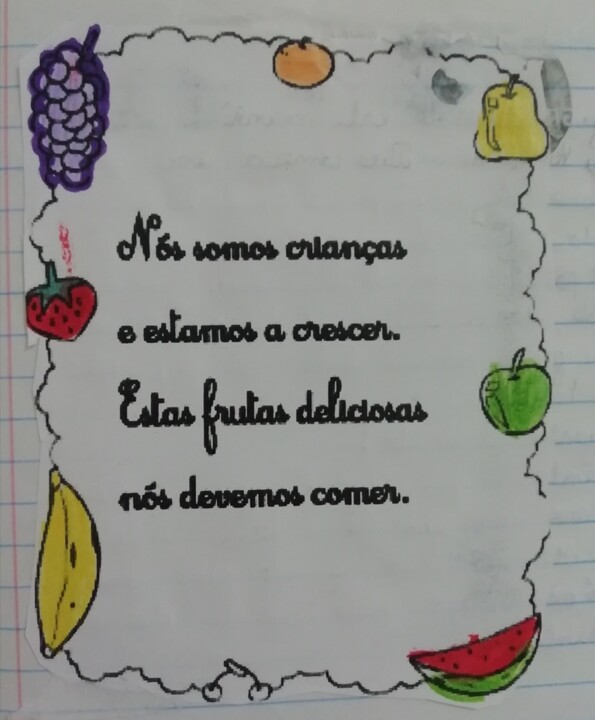 Nós somos crianças
e estamos a crescer.
Estas frutas deliciosas
nós devemos comer.